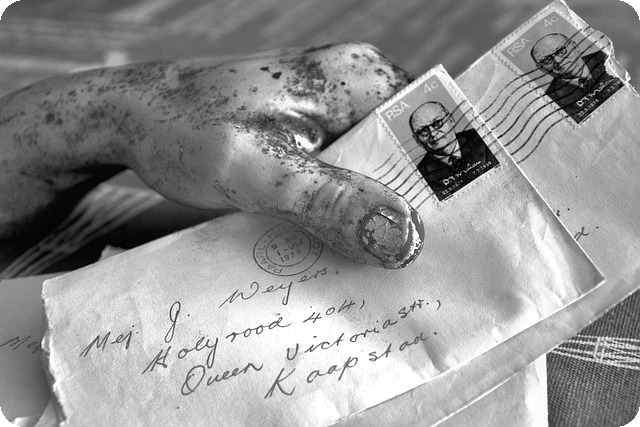 RSA 4c
RSA 4c
Mej. J. Weyers.
Holyrood 404,
Queen Victoriastr.,
Kaapstad.